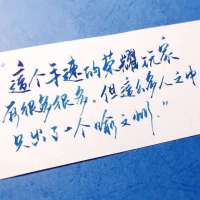 這个手速的荣耀玩家
有很多很多。但這么多人之中
只出了一个喻文州."